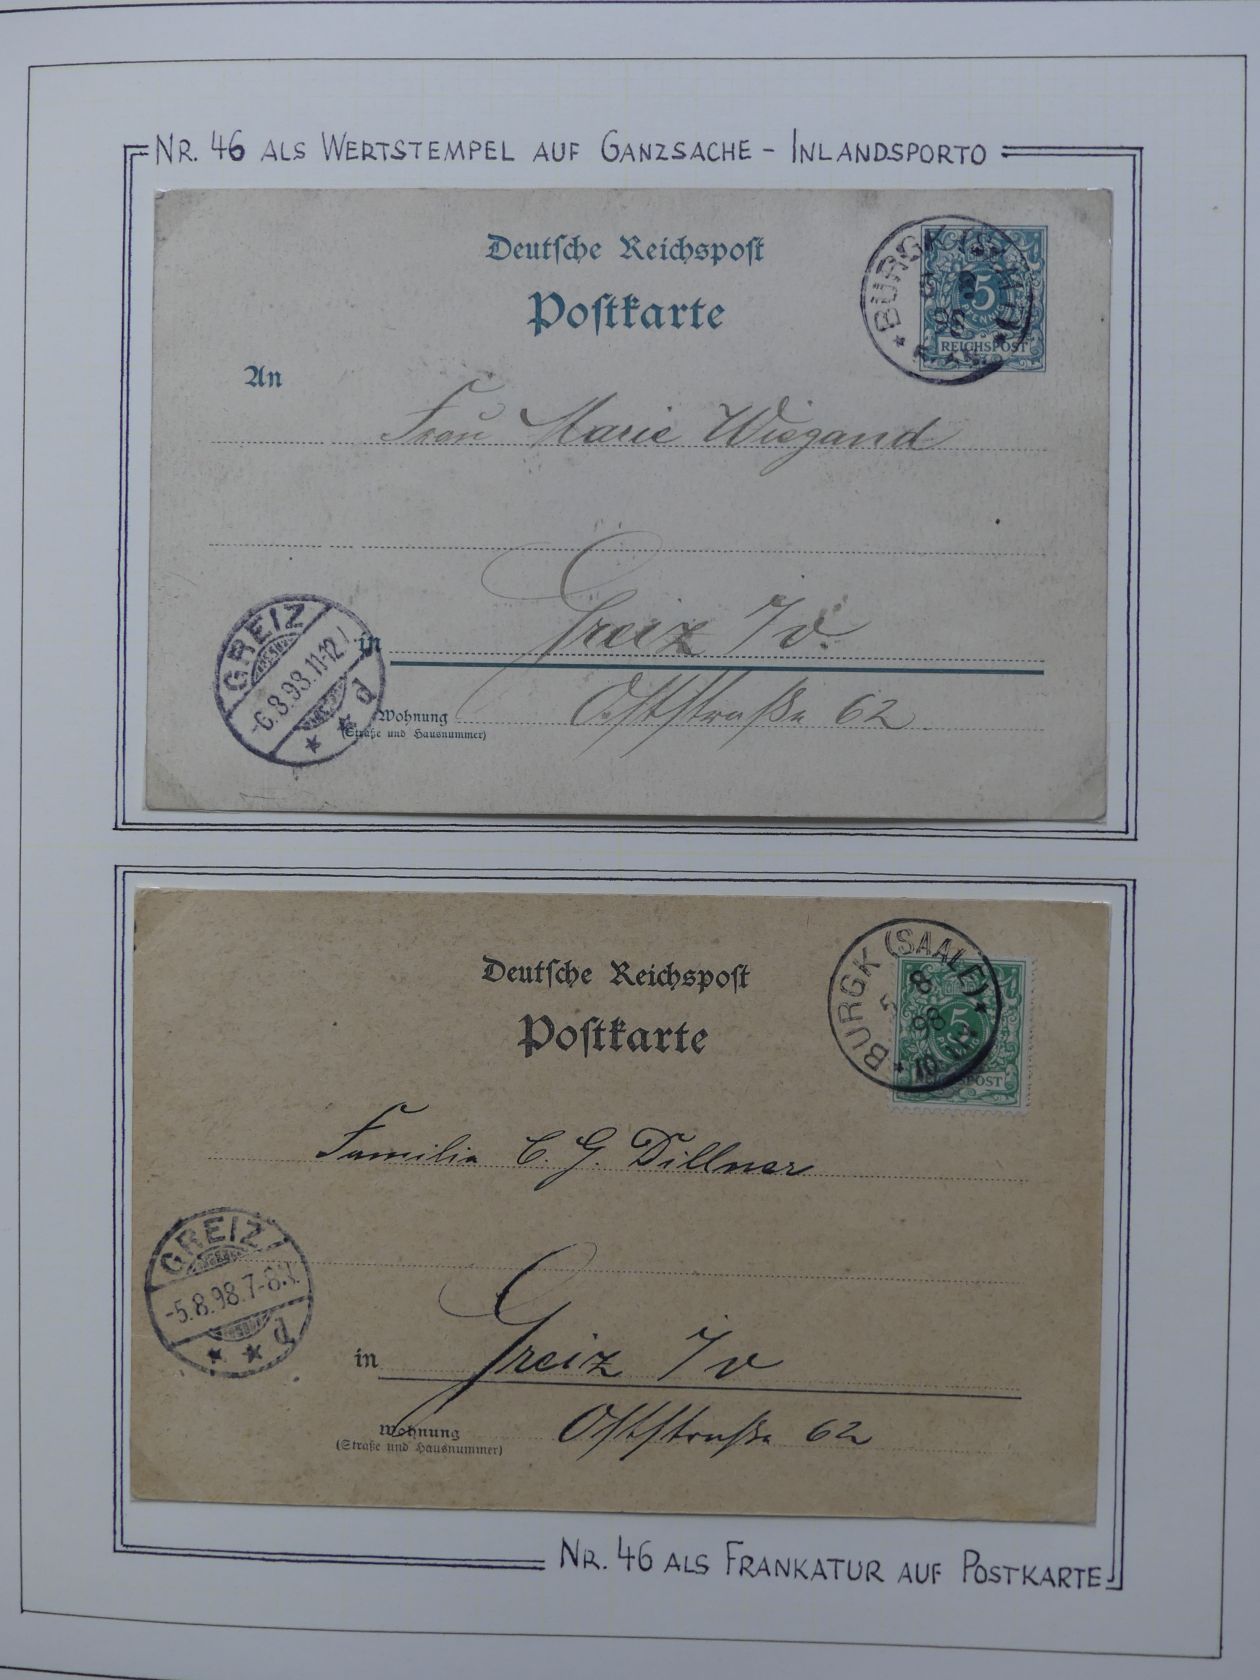 NR. 46 ALS WERTSTEMPEL AUF GANZSACHE – INLANDSPORTO
Deutsche Reichspost
Postkarte
BURGK
98
5
REICHSPOST
An
Frau Marie Wiegand
GREIZ
-6.8.98.11-12.
d
in
Greiz i/v.
Wohnung
(Straße und Hausnummer)
Oststraße 62
Deutsche Reichspost
Postkarte
BURGK (SAALE)
5 8
98
5
Familie C. G. Dillner
GREIZ
-5.8.98.7-8.
d
in
Greiz i/v
Wohnung
(Straße und Hausnummer)
Oststraße 62
NR. 46 ALS FRANKATUR AUF POSTKARTE